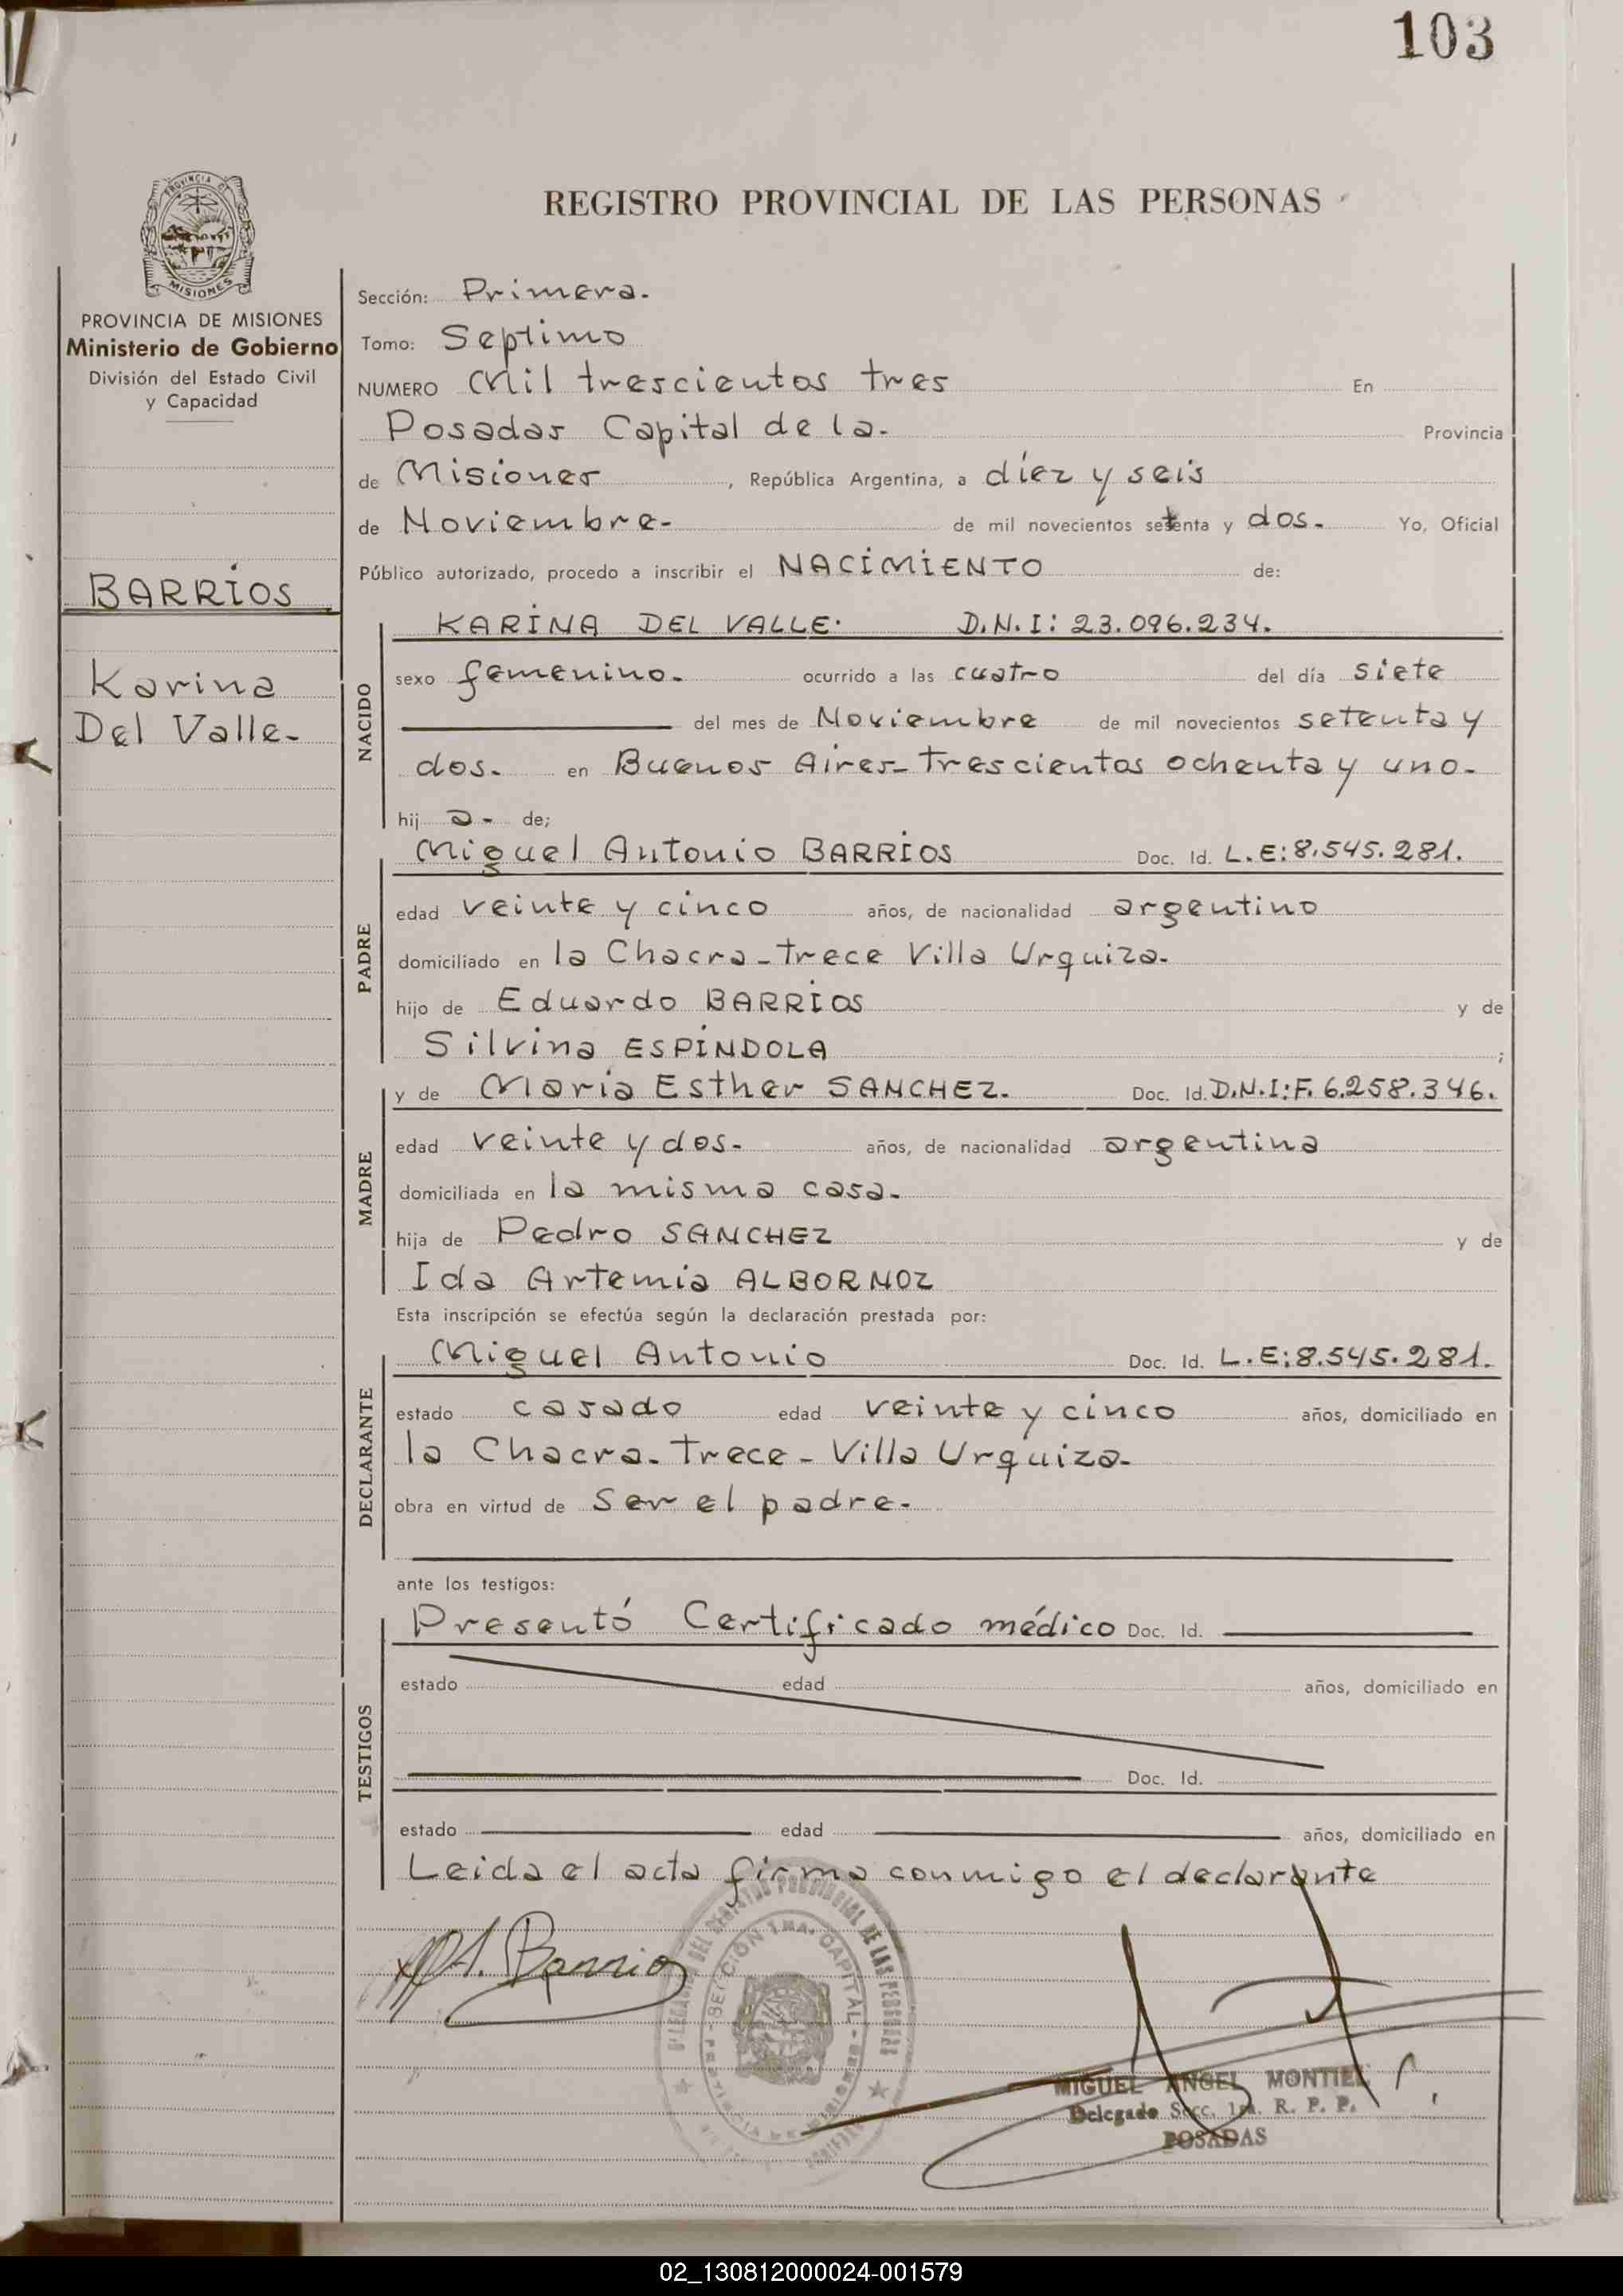 103
REGISTRO PROVINCIAL DE LAS PERSONAS
PROVINCIA DE
MISIONES
PROVINCIA DE MISIONES
Ministerio de Gobierno
División del Estado Civil
y Capacidad
BARRIOS
Karina
Del Valle-
Sección: Primera.
Tomo: Septimo
NUMERO Mil trescientos tres En
Posadas Capital de la. Provincia
de Misiones, República Argentina, a diez y seis
de Noviembre- de mil novecientos setenta y dos. Yo, Oficial
Público autorizado, procedo a inscribir el NACIMIENTO de:
NACIDO
KARINA DEL VALLE. D.N.I: 23.096.234.
sexo femenino. ocurrido a las cuatro del día siete
del mes de Noviembre de mil novecientos setenta y
dos. en Buenos Aires-trescientos ochenta y uno-
hij a- de;
PADRE
Miguel Antonio BARRIOS Doc. Id. L.E:8.545.281.
edad veinte y cinco años, de nacionalidad argentino
domiciliado en la Chacra-trece Villa Urquiza.
hijo de Eduardo BARRIOS y de
Silvina ESPINDOLA ;
MADRE
y de Maria Esther SANCHEZ. Doc. Id. D.N.I:F. 6.258.346.
edad veinte y dos. años, de nacionalidad argentina
domiciliada en la misma casa.
hija de Pedro SANCHEZ y de
Ida Artemia ALBORNOZ
Esta inscripción se efectúa según la declaración prestada por:
DECLARANTE
Miguel Antonio Doc. Id. L.E:8.545.281.
estado casado edad veinte y cinco años, domiciliado en
la Chacra-trece-Villa Urquiza-
obra en virtud de Ser el padre.
ante los testigos:
TESTIGOS
Presentó Certificado médico Doc. Id.
estado edad años, domiciliado en
Doc. Id.
estado edad años, domiciliado en
Leida el acta firma conmigo el declarante
A. Barrios
DELEGACION DEL REGISTRO PROVINCIAL DE LAS PERSONAS
SECCION 1RA. CAPITAL
MIGUEL ANGEL MONTIEL
Delegado Secc. 1ra. R. P. P.
POSADAS
02_130812000024-001579